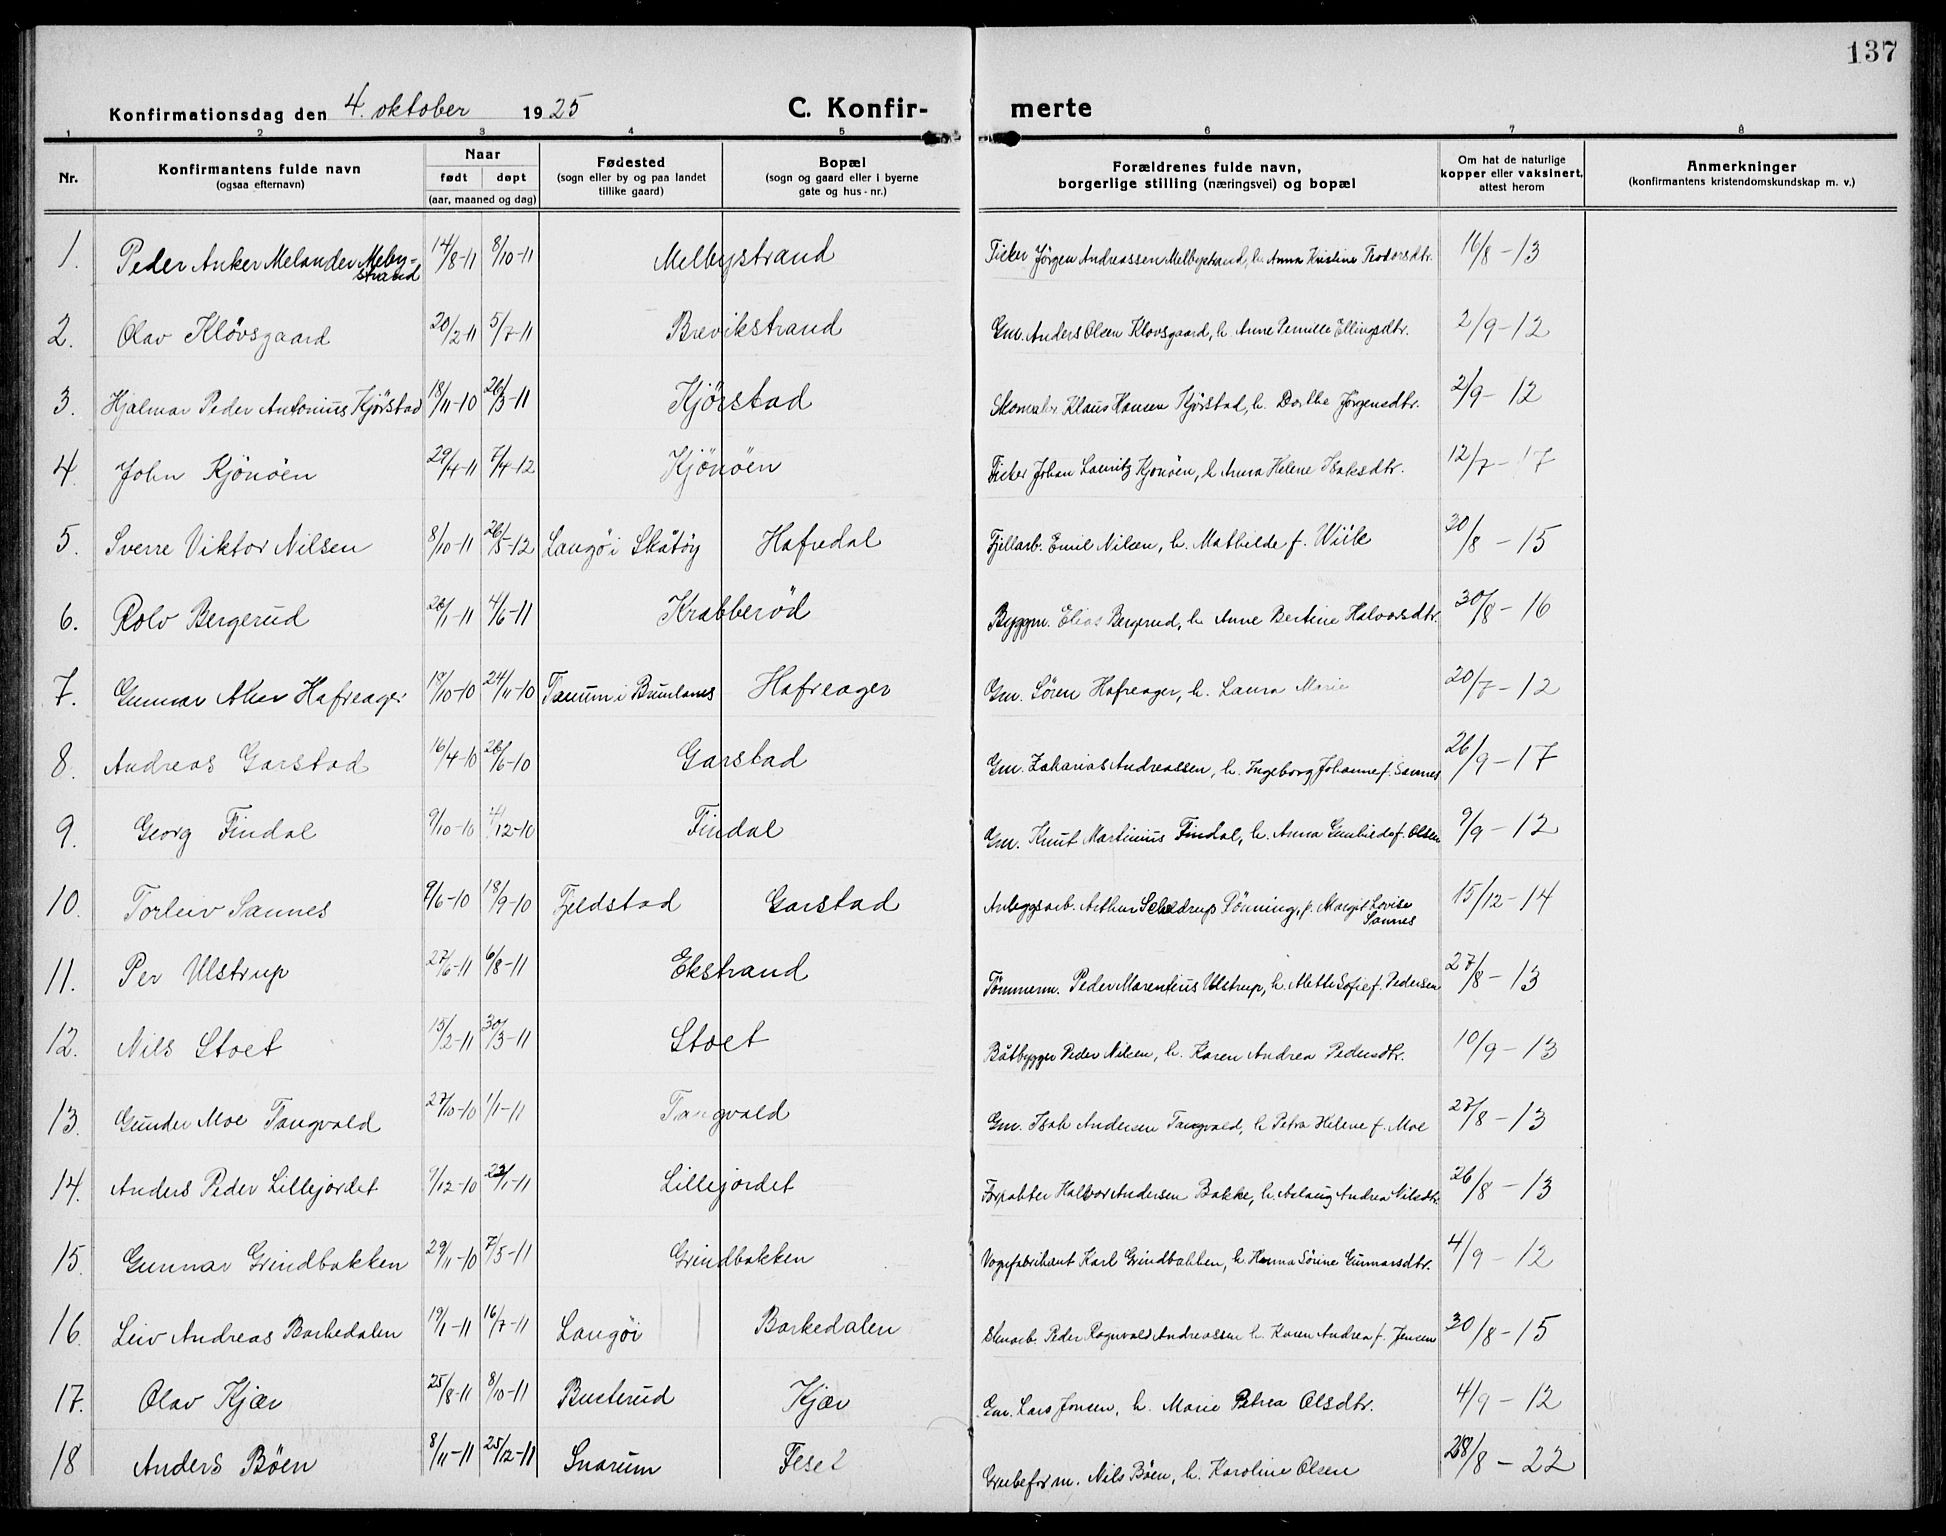 137
Konfirmationsdag den 4. oktober 1925 C. Konfir- merte
1 2 3 4 5 6 7 8
Nr. Konfirmantens fulde navn (ogsaa efternavn) Naar født døpt (aar, maaned og dag) Fødested (sogn eller by og paa landet tillike gaard) Bopæl (sogn og gaard eller i byerne gate og hus - nr.) Forældrenes fulde navn, borgerlige stilling (næringsvei) og bopæl Om hat de naturlige kopper eller vaksinert, attest herom Anmerkninger (konfirmantens kristendomskundskap m. v.)
1. Peder Anker Melander Melby-strand 14/8-11 8/10-11 Melbystrand Fisker Jörgen Andreassen Melbystrand, h. Anna Kristine Teodorsdtr. 16/8-13
2. Olav Klövsgaard 20/2-11 5/7-11 Brevikstrand Gm. Anders Olsen Klovsgaard, h. Anne Pernille Ellingsdtr. 2/9-12
3. Hjalmar Peder Antonius Kjørstad 18/11-10 26/3-11 Kjørstad Skomaker Klaus Hansen Kjørstad, h. Dorthe Jørgensdtr. 2/9-12
4. John Kjönöen 29/4-11 7/4-12 Kjönöen Fisker Johan Lauritz Kjonöen, h. Anna Helene Isaksdtr. 12/7-17
5. Sverre Viktor Nilsen 8/10-11 26/5-12 Langöi Skåtöy Hafredal Fjellarb. Emil Nilsen, h. Mathilde f. Wiik 30/8-15
6. Rolv Bergerud 28/1-11 4/6-11 Krabberöd Byggm. Elias Bergerud, h. Anne Bertine Halvorsdtr. 30/8-16
7. Gunnar Aker Hafreager 19/10-10 24/11-10 Tanum i Brunlanes Hafreager Gm. Sören Hafreager, h. Laura Marie 20/7-12
8. Andreas Garstad 16/4-10 26/6-10 Garstad Gm. Zakarias Andreassen, h. Ingeborg Johanne f. Sannes 26/9-17
9. Georg Findal 9/10-10 4/12-10 Findal Gm. Knut Martinius Findal, h. Anna Gunhild f. Olsen 9/9-12
10. Torleiv Sannes 9/6-10 18/9-10 Fjeldstad Garstad Anleggsarb. Arthur Scheldrup Pönning, p. Margit Lovise Sannes 15/12-14
11. Per Ulstrup 27/6-11 6/8-11 Ekstrand Tömmerm. Peder Marentius Ulstrup, h. Mette Sofie f. Pedersen 27/8-13
12. Nils Stoet 15/2-11 30/3-11 Stoet Båtbygger Peder Nilsen, h. Karen Andrea Pedersdtr. 10/9-13
13. Gunder Moe Tangvald 27/10-10 1/1-11 Tangvald Gm. Isak Andersen Tangvald, h. Petra Helene f. Moe 27/8-13
14. Anders Peder Lillejordet 9/12-10 22/1-11 Lillejordet Forpakter Halvor Andersen Bakke, h. Aslaug Andrea Nilsdtr. 26/8-13
15. Gunnar Grindbakken 29/11-10 7/5-11 Grindbakken Vognfabrikant Karl Grindbakken, h. Hanna Sörine Gunnarsdtr. 4/9-12
16. Leiv Andreas Barkedalen 19/1-11 16/7-11 Langöi Barkedalen Peder Ragnvald Andreassen h. Karen Andrea f. Jensen 30/8-15
17. Olav Kjær 25/8-11 8/10-11 Busterud Kjær Gm. Lars Jonsen, h. Marie Petrea Olsdtr. 4/9-12
18 Anders Böen 8/11-11 25/12-11 Snarum Feset Grubeform. Nils Böen, h. Karoline Olsen 28/8-22